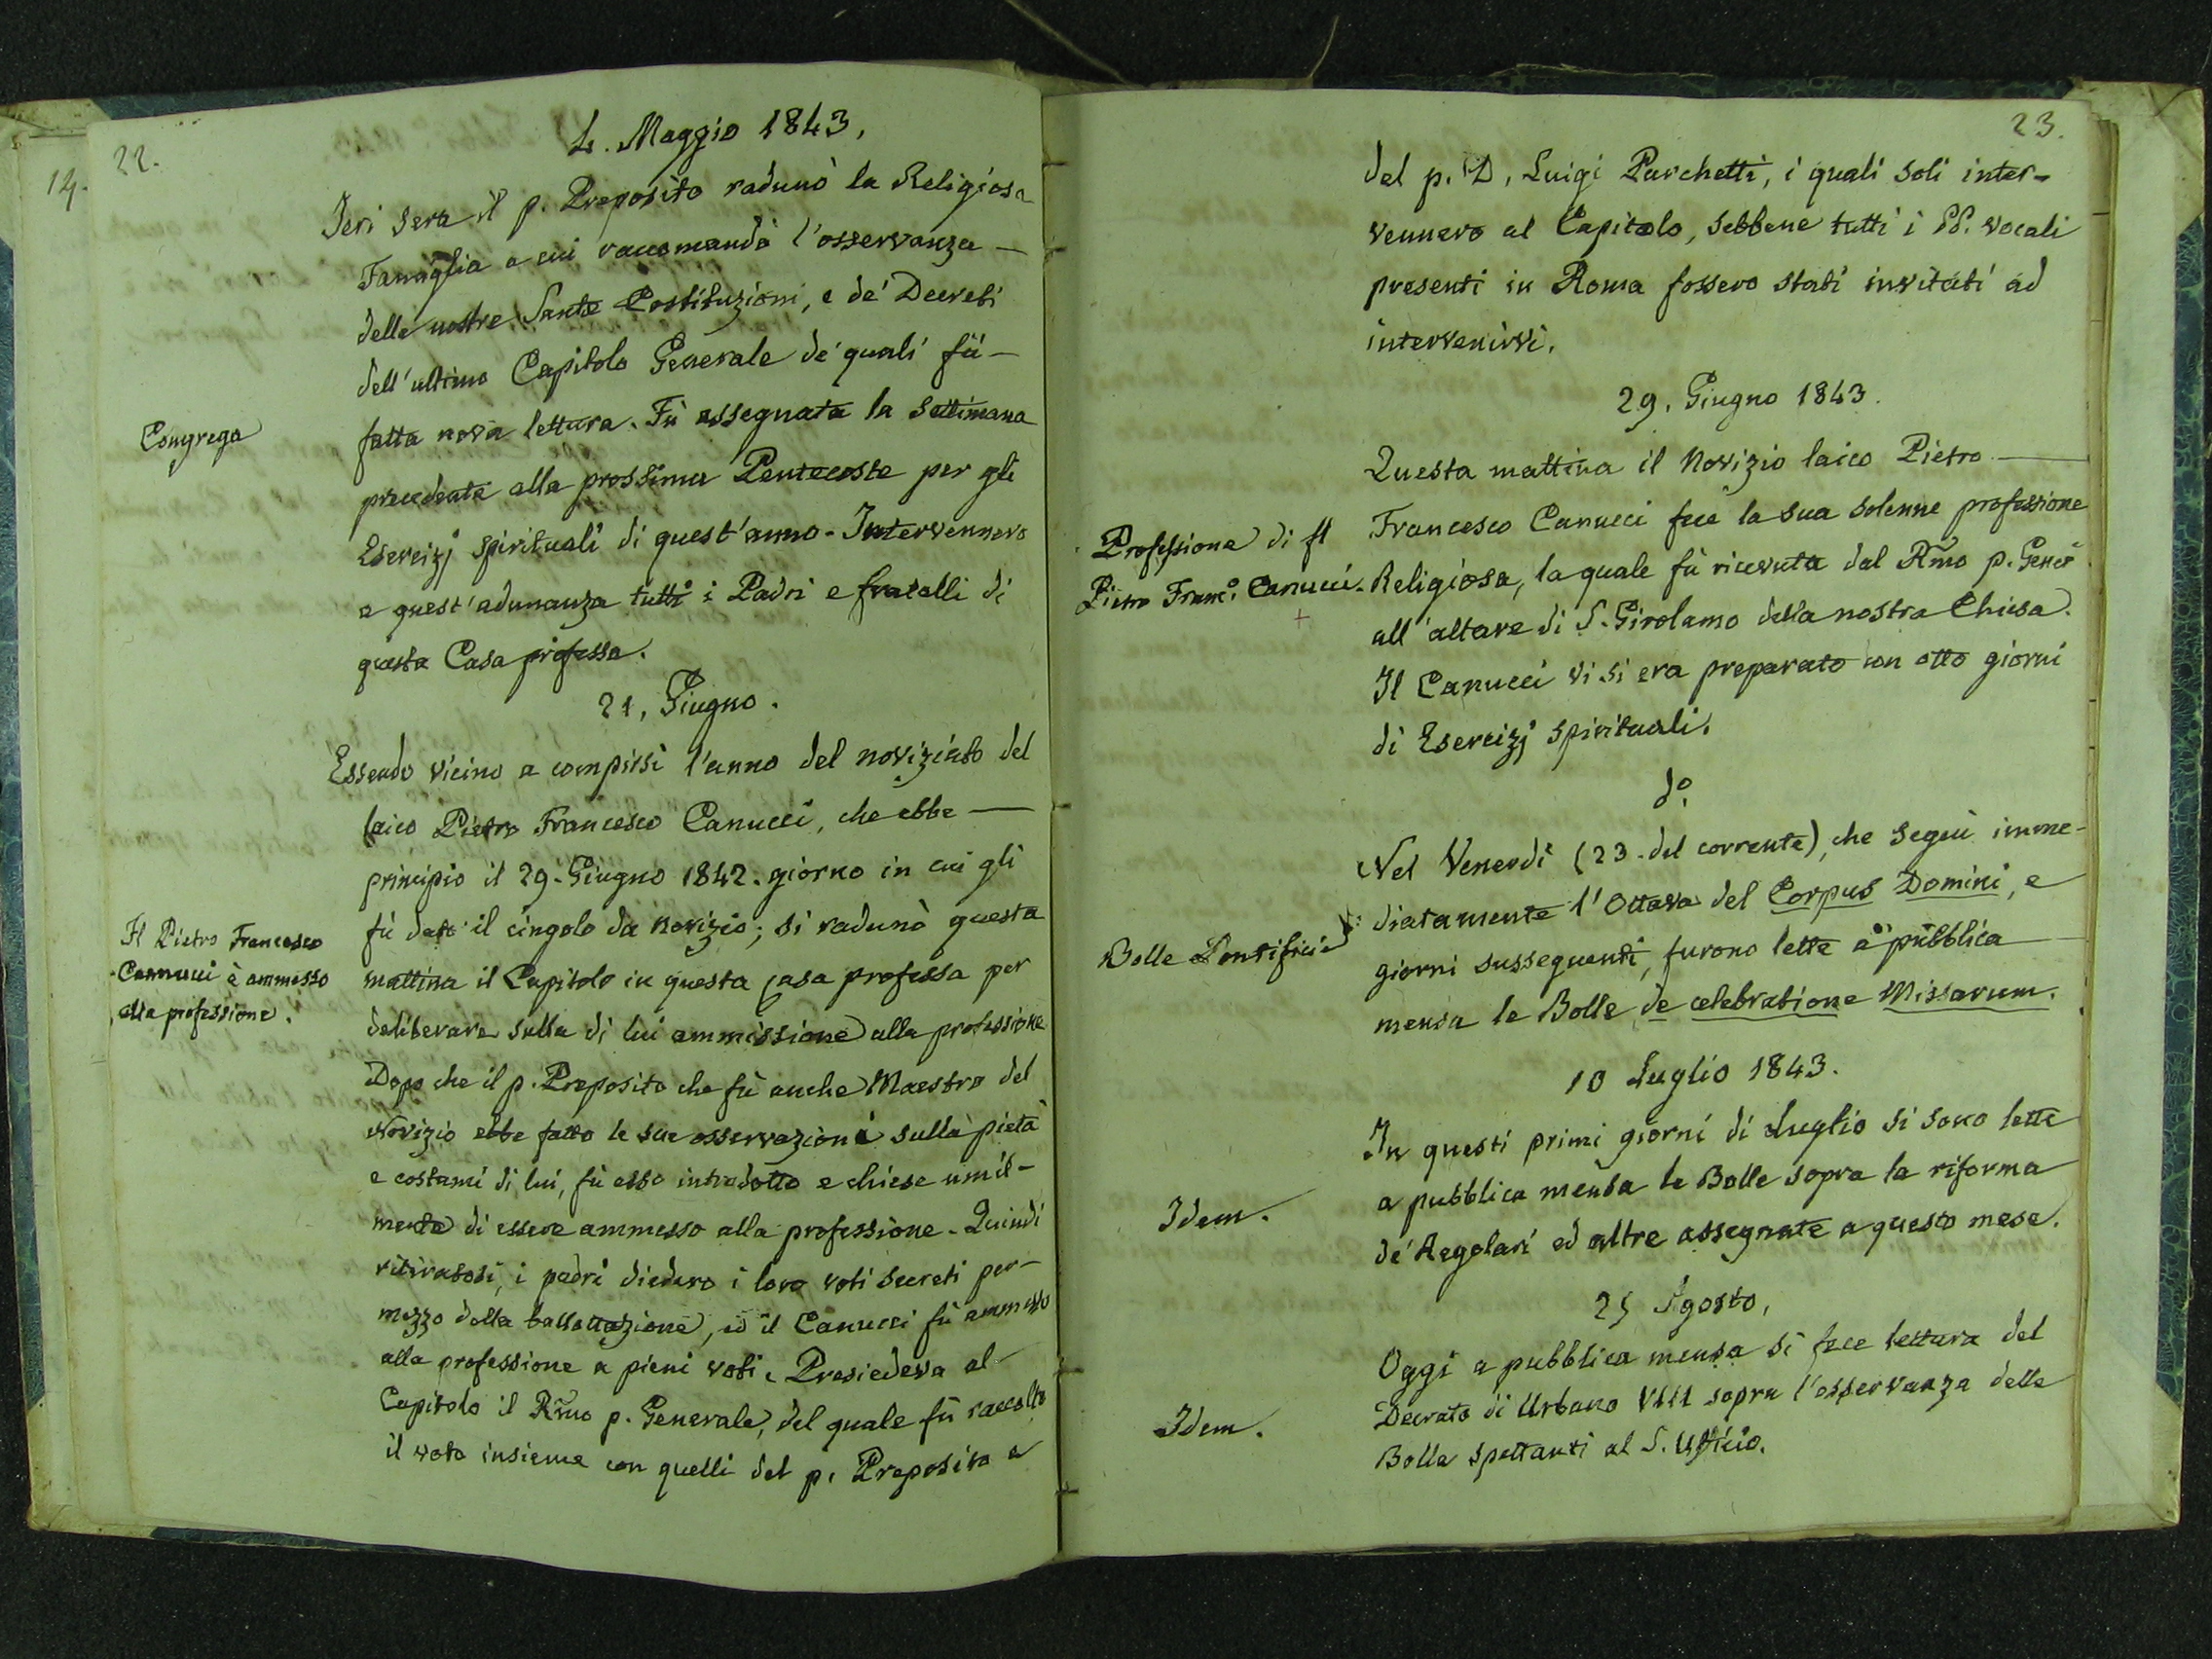 19.
22.
4. Maggio 1843.
Ieri sera il p. Preposito radunò la Religiosa
Famiglia a cui raccomandò l'osservanza —
delle nostre Sante Costituzioni, e de' Decreti
dell'ultimo Capitolo Generale de' quali fù —
fatta nova lettura. Fù assegnata la settimana
Congrega
precedente alla prossima Pentecoste per gli
Esercizj spirituali di quest'anno - Intervennero
a quest'adunanza tutti i Padri e fratelli di
questa Casa professa.
21. Giugno.
Essendo vicino a compirsi l'anno del noviziato del
laico Pietro Francesco Canucci, che ebbe —
principio il 29. Giugno 1842. giorno in cui gli
fù dato il cingolo da novizio; si radunò questa
Il Pietro Francesco
Cannucci è ammesso
alla professione.
mattina il Capitolo in questa casa professa per
deliberare sulla di lui ammissione alla professione
Dopo che il p. Preposito che fù anche Maestro del
Novizio ebbe fatto le sue osservazioni sulla pietà
e costumi di lui, fù esso introdotto e chiese umil-
mente di essere ammesso alla professione - Quindi
ritiratosi, i padri diedero i loro voti secreti per —
mezzo della ballottazione, ed il Canucci fù ammesso
alla professione a pieni voti. Presiedeva al
Capitolo il Rmo p. Generale, del quale fù raccolto
il voto insieme con quelli del p. Preposito e
23.
del p. D. Luigi Parchetti, i quali soli inter-
vennero al Capitolo, sebbene tutti i PP. vocali
presenti in Roma fossero stati invitati ad
intervenirvi.
29. Giugno 1843.
Questa mattina il Novizio laico Pietro —
Francesco Canucci fece la sua solenne professione
Professione di fl
Pietro Franc.o Canucci.
Religiosa, la quale fù ricevuta dal Rmo p. Gene
all'altare di S. Girolamo della nostra Chiesa.
Il Canucci vi si era preparato con otto giorni
di Esercizj spirituali.
do.
Nel Venerdì (23. del corrente), che seguì imme-
diatamente l'Ottava del Corpus Domini, e
Bolle Pontificie
giorni susseguenti, furono lette a pubblica
mensa le Bolle de celebratione Missarum.
10 Luglio 1843.
In questi primi giorni di Luglio si sono lette
a pubblica mensa le Bolle sopra la riforma
Idem.
de' Regolari ed altre assegnate a questo mese.
25 Agosto.
Oggi a pubblica mensa si fece lettura del
Decreto di Urbano VIII sopra l'osservanza delle
Idem.
Bolle spettanti al S. Uffizio.